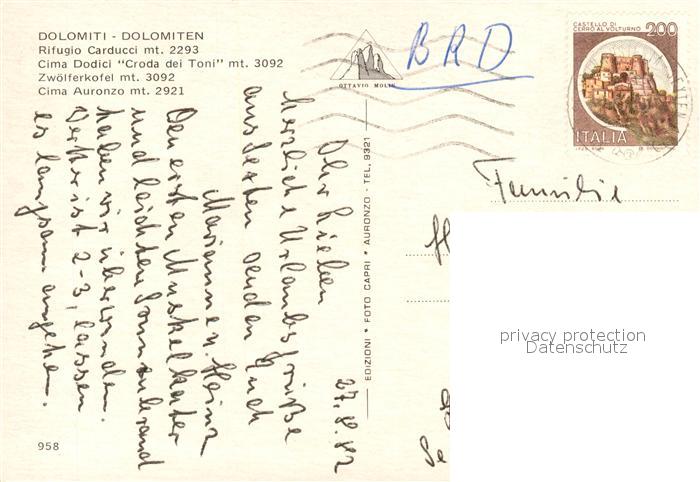 DOLOMITI - DOLOMITEN
Rifugio Carducci mt. 2293
Cima Dodici "Croda dei Toni" mt. 3092
Zwölferkofel mt. 3092
Cima Auronzo mt. 2921
OTTAVIO MOLIN
BRD
CASTELLO DI
CERRO AL VOLTURNO
200
ITALIA
Familie
27.8.82
Ihr Lieben
herzliche Urlaubsgrüße
aus Sexten senden Euch
Marianne u. Heinz
Den ersten Muskelkater
und leichten Sonnenbrand
haben wir überwunden.
ist 2-3, lassen
es langsam angehen.
EDIZIONI * FOTO CAPRI * AURONZO - TEL. 9321
958
privacy protection
Datenschutz